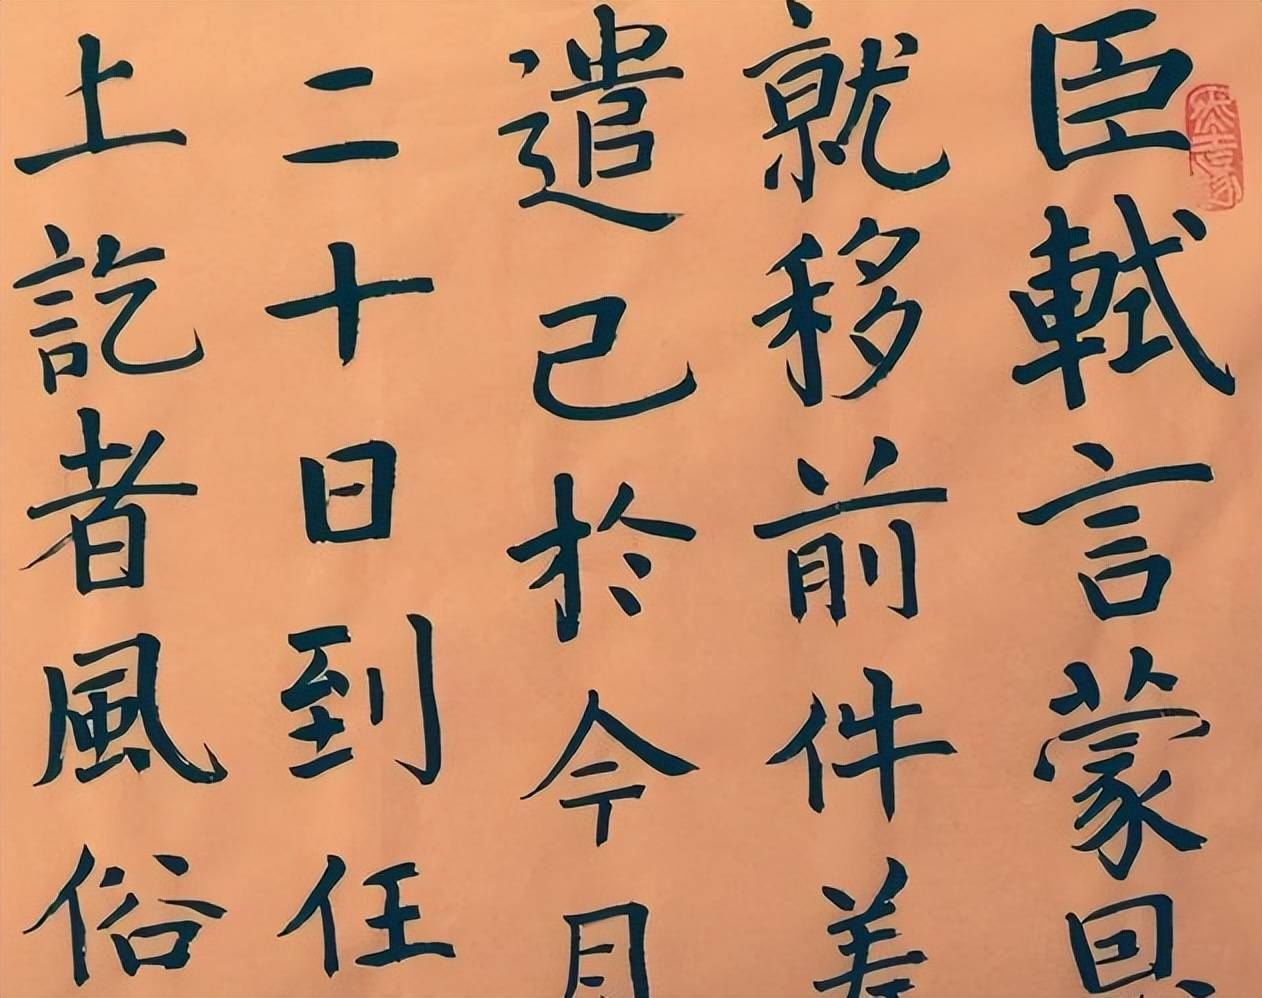 臣軾言蒙恩
就移前件差
遣已於今月
二十日到任
上訖者風俗